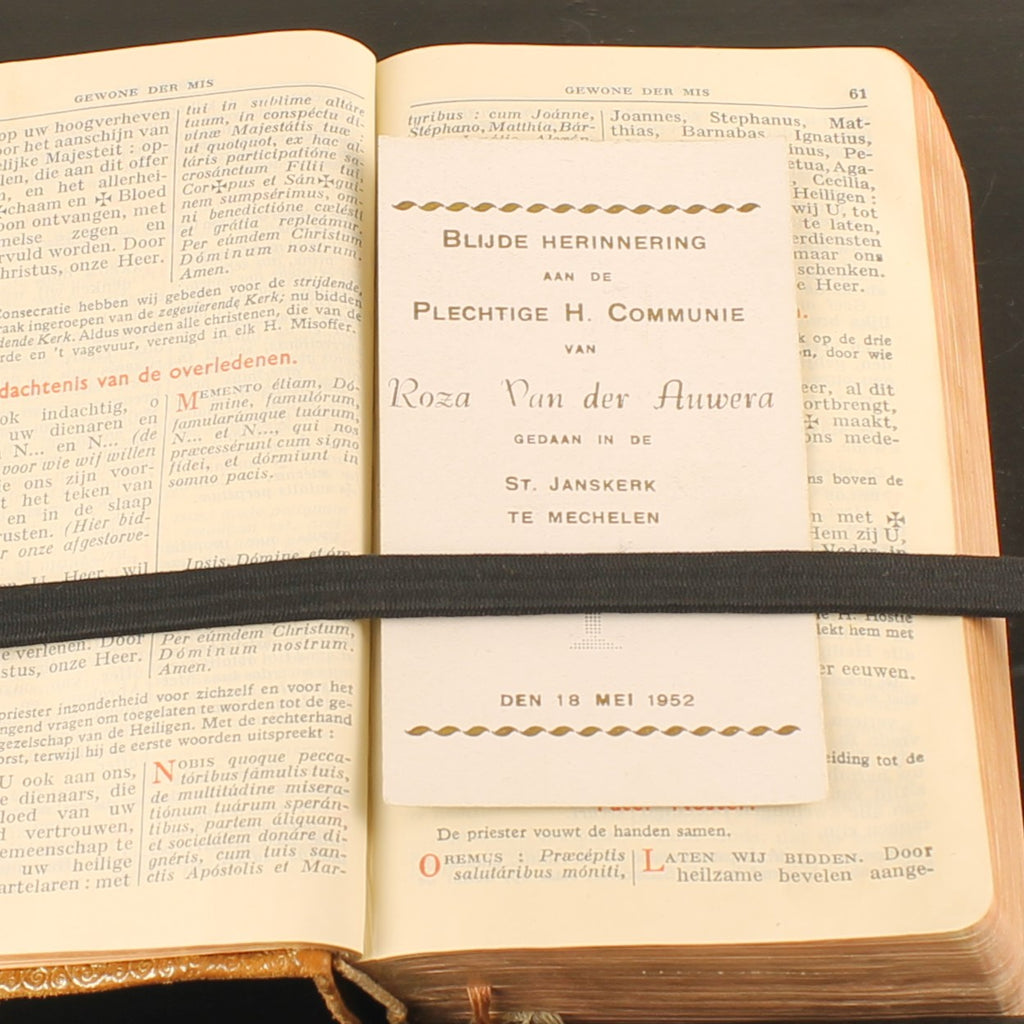 GEWONE DER MIS
op uw hoogverheven
oor het aanschijn van
elijke Majesteit : op-
len, die aan dit offer
, en het allerhei-
✠chaam en ✠ Bloed
oon ontvangen, met
melse zegen en
rvuld worden. Door
hristus, onze Heer.
tui in sublime altáre
tuum, in conspéctu di-
vínæ Majestátis tuæ :
ut quotquot, ex hac al-
táris participatióne sa-
crosánctum Fílii tui,
Cor✠pus et Sán✠gui-
nem sumpsérimus, om-
ni benedictióne cælésti
et grátia repleámur.
Per eúmdem Christum
Dóminum nostrum.
Amen.
Consecratie hebben wij gebeden voor de strijdende,
raak ingeroepen van de zegevierende Kerk; nu bidden
dende Kerk. Aldus worden alle christenen, die van de
rde en 't vagevuur, verenigd in elk H. Misoffer.
dachtenis van de overledenen.
ok indachtig, o
uw dienaren en
N... en N... (de
voor wie wij willen
e ons zijn voor-
t het teken van
en in de slaap
rusten. (Hier bid-
r onze afgestorve-
U Heer, wil
MEMENTO étiam, Dó-
mine, famulórum,
famularúmque tuárum,
N... et N..., qui nos
præcessérunt cum signo
fídei, et dórmiunt in
somno pacis.
Ipsis, Dómine, et óm-
e verlenen. Door
stus, onze Heer.
Per eúmdem Christum,
Dóminum nostrum.
Amen.
priester inzonderheid voor zichzelf en voor het
ngend vragen om toegelaten te worden tot de ge-
gezelschap van de Heiligen. Met de rechterhand
orst, terwijl hij de eerste woorden uitspreekt :
U ook aan ons,
e dienaars, die
loed van uw
d vertrouwen,
emeenschap te
uw heilige
artelaren : met
NOBIS quoque pecca-
tóribus fámulis tuis,
de multitúdine misera-
tiónum tuárum sperán-
tibus, partem áliquam,
et societátem donáre di-
gnéris, cum tuis san-
ctis Apóstolis et Mar-
GEWONE DER MIS 61
tyribus : cum Joánne,
Stéphano, Matthía, Bár-
Joannes, Stephanus, Mat-
thias, Barnabas, Ignatius,
inus, Pe-
etua, Aga-
, Cecilia,
Heiligen :
wij U, tot
te laten,
erdiensten
maar ons
schenken.
e Heer.
k op de drie
n, door wie
eer, al dit
ortbrengt,
✠ maakt,
ons mede-
ns boven de
n met ✠
Hem zij U,
Vader in
e H. Hostie
lekt hem met
er eeuwen.
eiding tot de
BLIJDE HERINNERING
AAN DE
PLECHTIGE H. COMMUNIE
VAN
Roza Van der Auwera
GEDAAN IN DE
ST. JANSKERK
TE MECHELEN
DEN 18 MEI 1952
Pater Noster.
De priester vouwt de handen samen.
OREMUS : Præcéptis
salutáribus móniti,
LATEN WIJ BIDDEN. Door
heilzame bevelen aange-